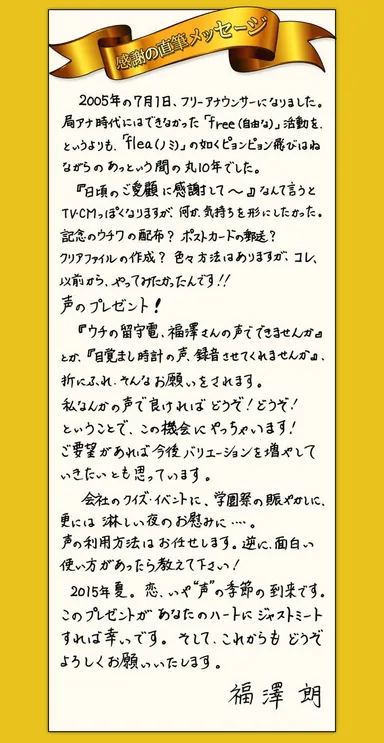 感謝の直筆メッセージ
2005年の7月1日、フリーアナウンサーになりました。
局アナ時代にはできなかった「free(自由な)」活動を、
というよりも、「flea(ノミ)」の如くピョンピョン飛びはね
ながらのあっという間の丸10年でした。
『日頃のご愛顧に感謝して〜』なんて言うと
TV-CMっぽくなりますが、何か、気持ちを形にしたかった。
記念のウチワの配布? ポストカードの郵送?
クリアファイルの作成? 色々方法はありますが、コレ、
以前から、やってみたかったんです!!
声のプレゼント!
『ウチの留守電、福澤さんの声でできませんか』
とか、『目覚まし時計の声、録音させてくれませんか』、
折にふれ、そんなお願いをされます。
私なんかの声で良ければ どうぞ!どうぞ!
ということで、この機会にやっちゃいます!
ご要望があれば今後バリエーションを増やして
いきたいとも思っています。
会社のクイズ・イベントに、学園祭の賑やかしに、
更には 淋しい夜のお慰みに‥‥。
声の利用方法はお任せします。逆に、面白い
使い方があったら教えて下さい!
2015年夏。恋、いや“声”の季節の到来です。
このプレゼントが あなたのハートに ジャストミート
すれば幸いです。そして、これからも どうぞ
よろしくお願いいたします。
福澤 朗